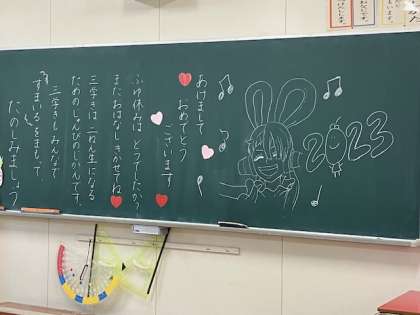 2023
あけまして
おめでとう
ございます
ふゆ休みは どうでしたか?
またおはなし きかせてね
三学きは 二ねん生になる
ためのじゅんびのじかんです。
三学きも みんなで
"すまいる"をまもって
たのしみましょう